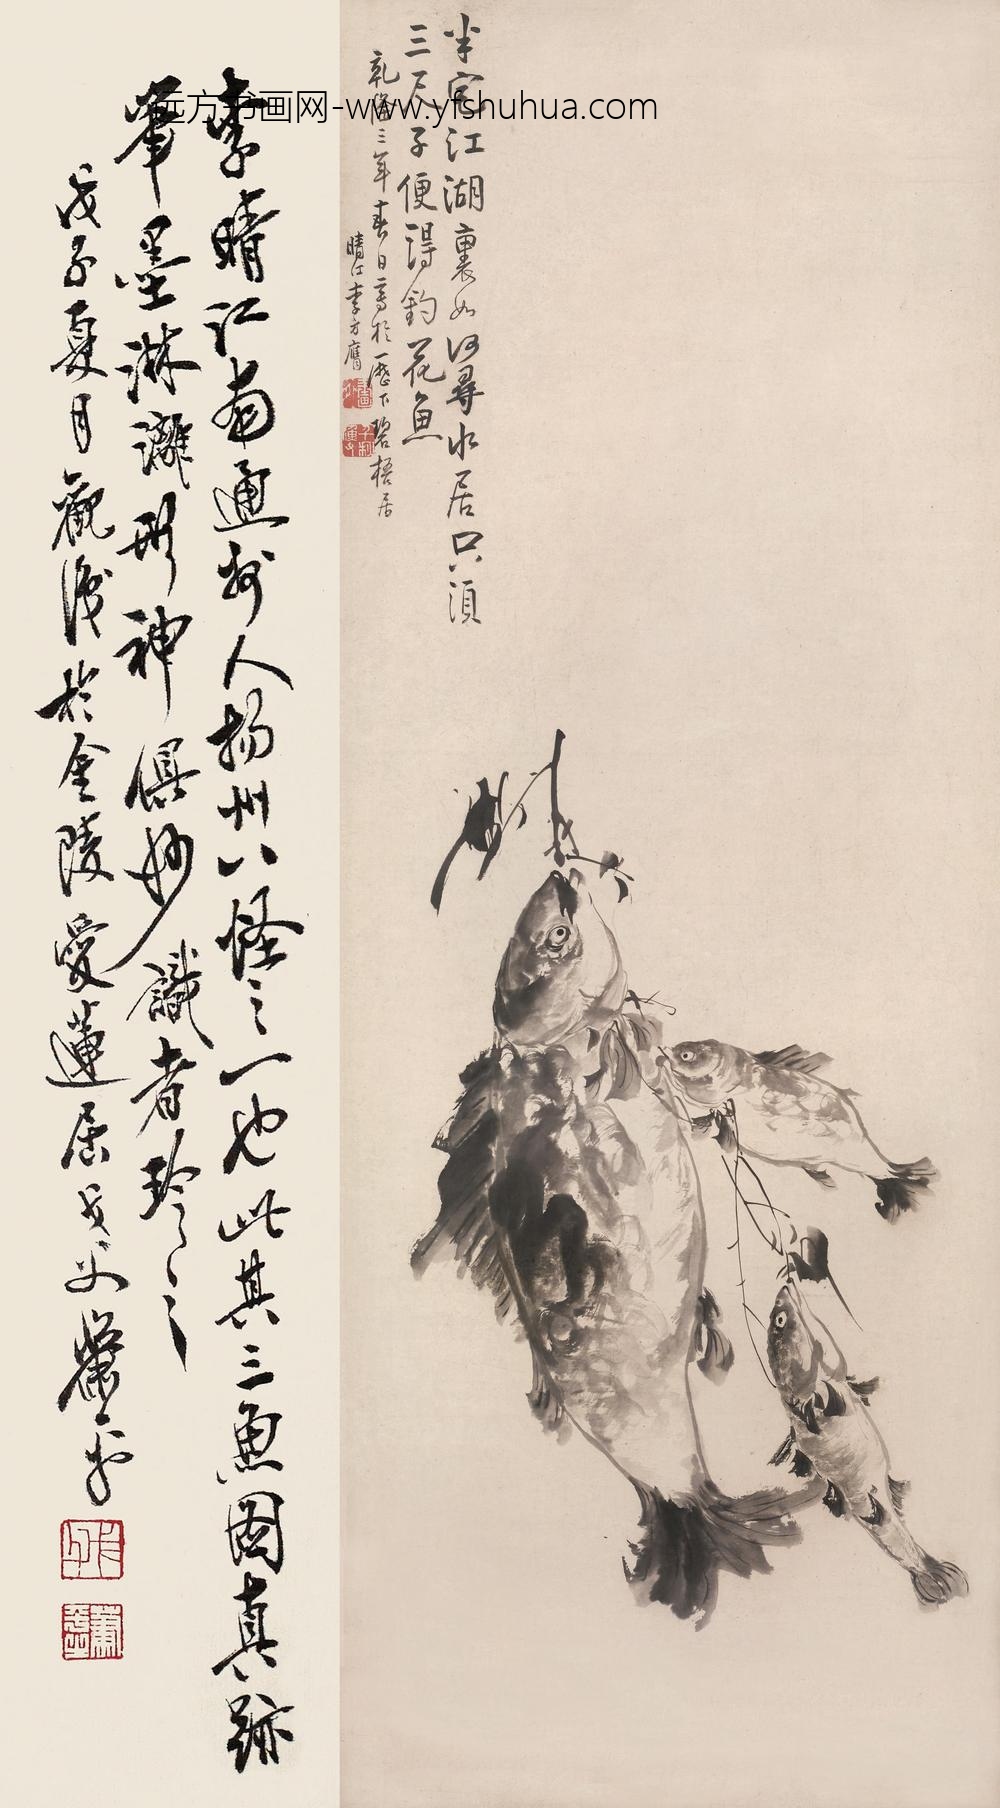 半定江湖裏如何尋水居只須
三尺子便得釣花魚
乾隆三年春日寫於歷下碧梧居
晴江李方膺
李晴江南通州人揚州八怪之一也此其三魚图真跡
筆墨淋灕形神俱妙識者珍之
戊子夏月觀後於金陵愛蓮居戈父蕭平
远方书画网-www.yfshuhua.com